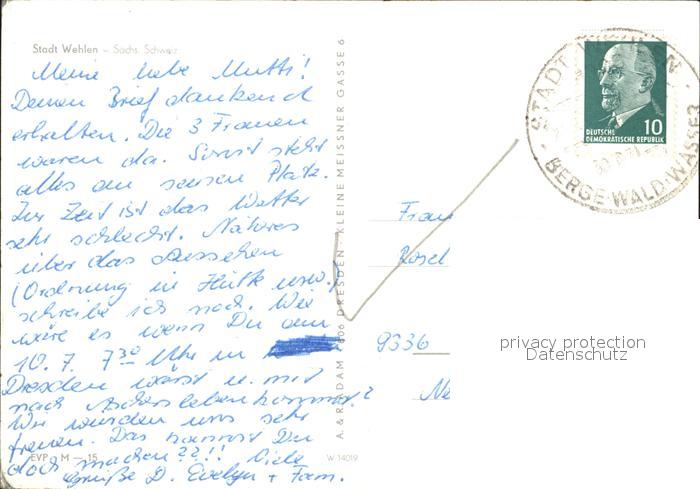 Stadt Wehlen – Sächs. Schweiz
Meine liebe Mutti!
Deinen Brief dankend
erhalten. Die 3 Frauen
waren da. Sonst steht
alles an seinen Platz.
Zur Zeit ist das Wetter
sehr schlecht. Näheres
über das Aussehen
(Ordnung in Hütte usw.)
schreibe ich noch. Wie
wäre es wenn Du am
10. 7. 7³⁰ Uhr in
Dresden wärst u. mit
nach Aschersleben kommst?
Wir würden uns sehr
freuen. Das kannst Du
doch machen??!! Viele
Grüße D. Evelyn + Fam.
EVP M — 15
W 14019
A. & R. ADAM 806 DRESDEN · KLEINE MEISSNER GASSE 6
STADT WEHLEN
BERGE·WALD·WASSER
10
DEUTSCHE
DEMOKRATISCHE REPUBLIK
Frau
Rosel
9336
Ne
privacy protection
Datenschutz